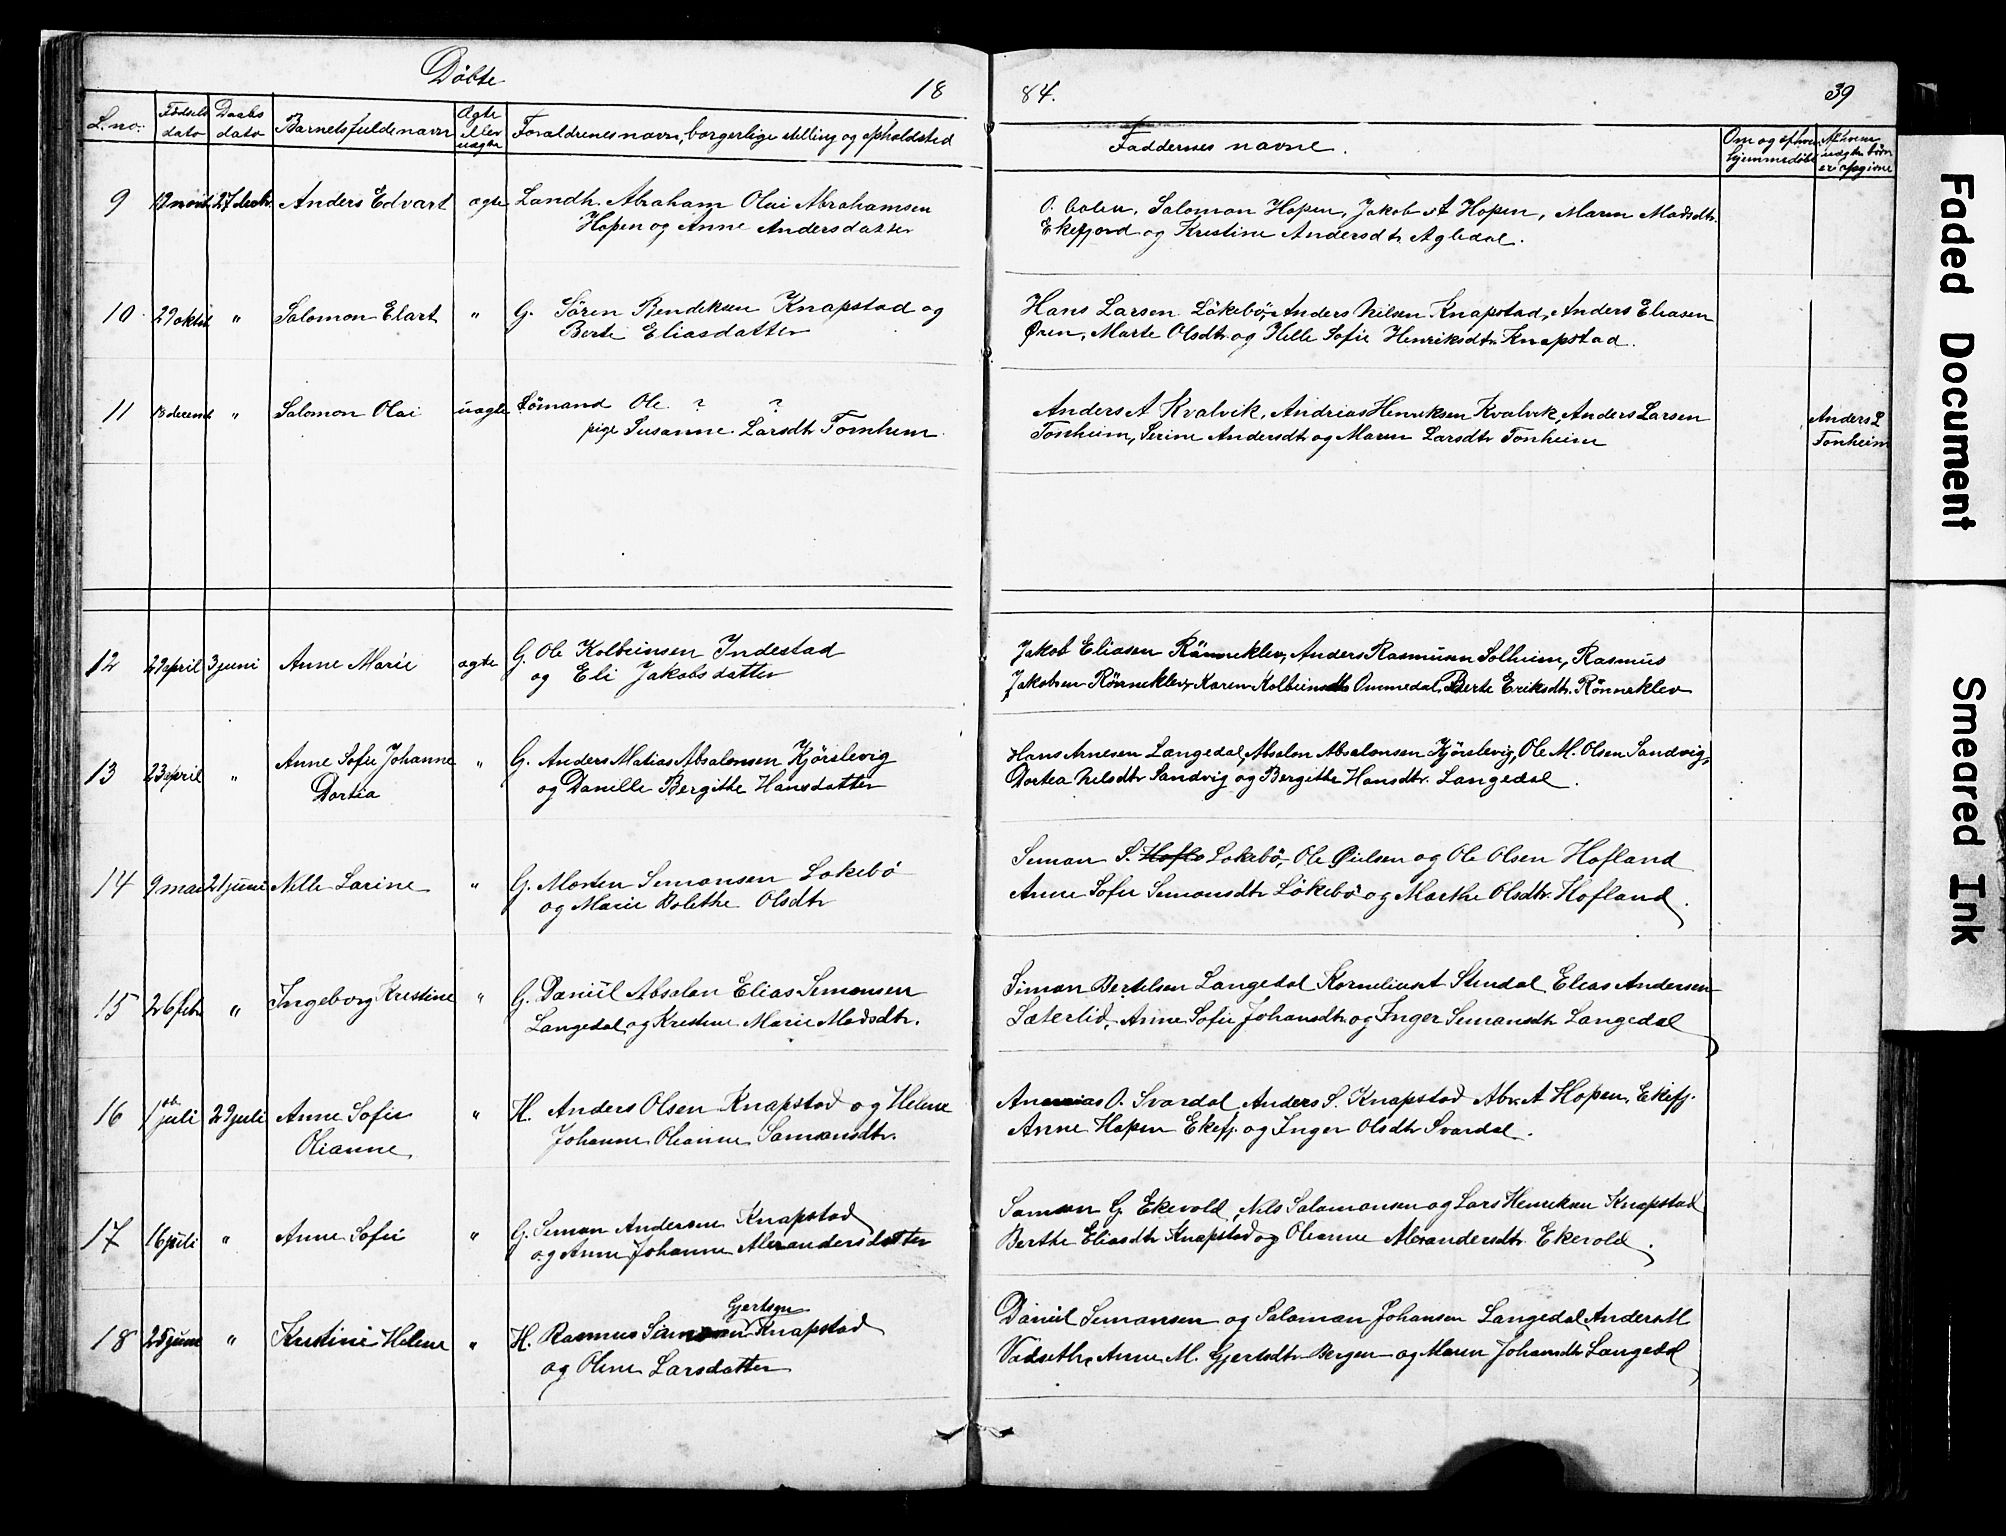 Döbte 18
84. 39
L. no. Födsels dato Daabs dato Barnets fulde navn Ægte eller uægte Forældrenes navn, borgerlige stilling og opholdsted
Faddernes navne. Om og af hvem hjemmedöbt Af hvem uægte börn er opgivne
9 12 novb. 27 decb. Anders Edvart ægte Landh. Abraham Olai Abrahamsen
Hopen og Anne Andersdatter
Salomon Hopen, Jakob A Hopen, Maren Madsdtr.
Ekefjord og Kristine Andersdtr Agledal.
10 29 oktb. " Salomon Elart " G. Sören Bendiksen Knapstad og
Berte Eliasdatter
Hans Larsen Lökebö, Anders Nilsen Knapstad, Anders Eliasen
Øren, Marte Olsdtr og Helle Sofie Henriksdtr. Knapstad.
11 13 decemb " Salomon Olai uægte Sömand Ole ? ?
pige Susanne Larsdtr Tonheim
Anders A Kvalvik, Andrias Henriksen Kvalvik, Anders Larsen
Tonheim, Serine Andersdtr og Maren Larsdtr Tonheim
Anders L
Tonheim
12 29 april 3 juni Anne Marie ægte G. Ole Kolbeinsen Indestad
og Eli Jakobsdatter
Jakob Eliasen Rönneklev, Anders Rasmusen Solheim, Rasmus
Jakobsen Rönneklev, Karen Kolbeinsdtr Ommedal, Berte Eriksdtr. Rönneklev
13 23 april " Anne Sofie Johanne " G. Anders Matias Absalonsen Kjörslevig
Dortea og Danille Bergithe Hansdatter
Hans Arnesen Langedal, Absalon Absalonsen Kjörslevig, Ole M. Olsen Sandvig,
Dortea Nilsdtr Sandvig og Bergithe Hansdtr. Langedal.
14 9 mai 21 juni Nille Larine " G. Morten Semonsen Lökebö
og Marie Bolethe Olsdtr
Semon S. Hofla Lökebö, Ole Øielsen og Ole Olsen Hofland
Anne Sofie Semonsdtr Lökebö og Marthe Olsdtr. Hofland.
15 26 febr " Ingeborg Kristine " G. Daniil Absalon Elias Semonsen
Langedal og Kristine Marie Madsdtr.
Simon Bertelsen Langedal Kornelius A Stendal Elias Andersen
Sæterlid, Anne Sofie Johansdtr og Inger Semonsdtr Langedal
16 1 juli 29 juli Anne Sofie " H. Anders Olsen Knapstad og Helene
Olianne Johanne Olianne Samonsdtr.
Ananias O. Svardal Anders S. Knapstad Abr. A Hopen, Ekefj.
Anne Hopen Ekefj. og Inger Olsdtr Svardal.
17 16 juli " Anne Sofie " G. Simon Andersen Knapstad
og Anne Johanne Alexandersdatter
Samson G Ekevold, Nils Salomonsen og Lars Henriksen Knapstad
Berthe Eliasdtr Knapstad og Olianne Alexandersdtr. Ekevold.
18 25 juni " Kristine Helene " H. Rasmus Gjertsen Knapstad
og Oline Larsdatter
Daniil Semonsen og Salomon Johansen Langedal Anders M
Vadseth, Anne M. Gjertsdtr Bergen og Maren Johansdtr Langedal
Faded Document
Smeared Ink